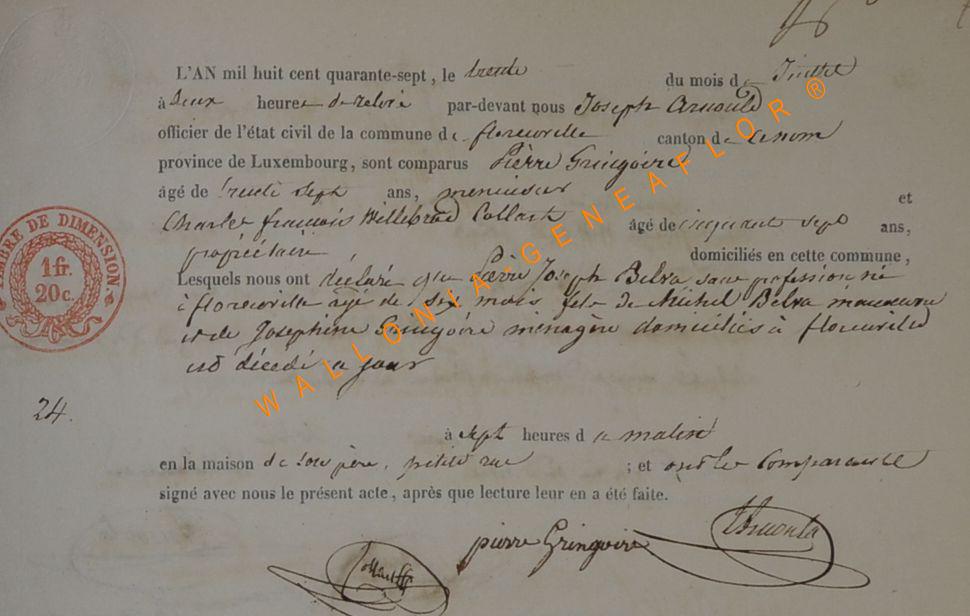 L'AN mil huit cent quarante-sept, le treize du mois de Juillet
à Deux heures de relevée par-devant nous Joseph Arnould
officier de l'état civil de la commune de florenville canton de ce nom
province de Luxembourg, sont comparus Pierre Gringoire
âgé de trente sept ans, menuisier et
Charles françois Willebrod Collart âgé de cinquante sept ans,
propriétaire domiciliés en cette commune,
Lesquels nous ont déclaré que Pierre Joseph Belva sans profession né
à florenville agé de six mois fils de Michel Belva manoeuvre
et de Josephine Gringoire ménagère domiciliés à florenville
est décédé ce jour
24.
à sept heures du matin
en la maison de son père, petite rue ; et ont les comparants
signé avec nous le présent acte, après que lecture leur en a été faite.
pierre Gringoire
TIMBRE DE DIMENSION
1 fr.
20 c.
WALLONIA-GENEAFLOR ®